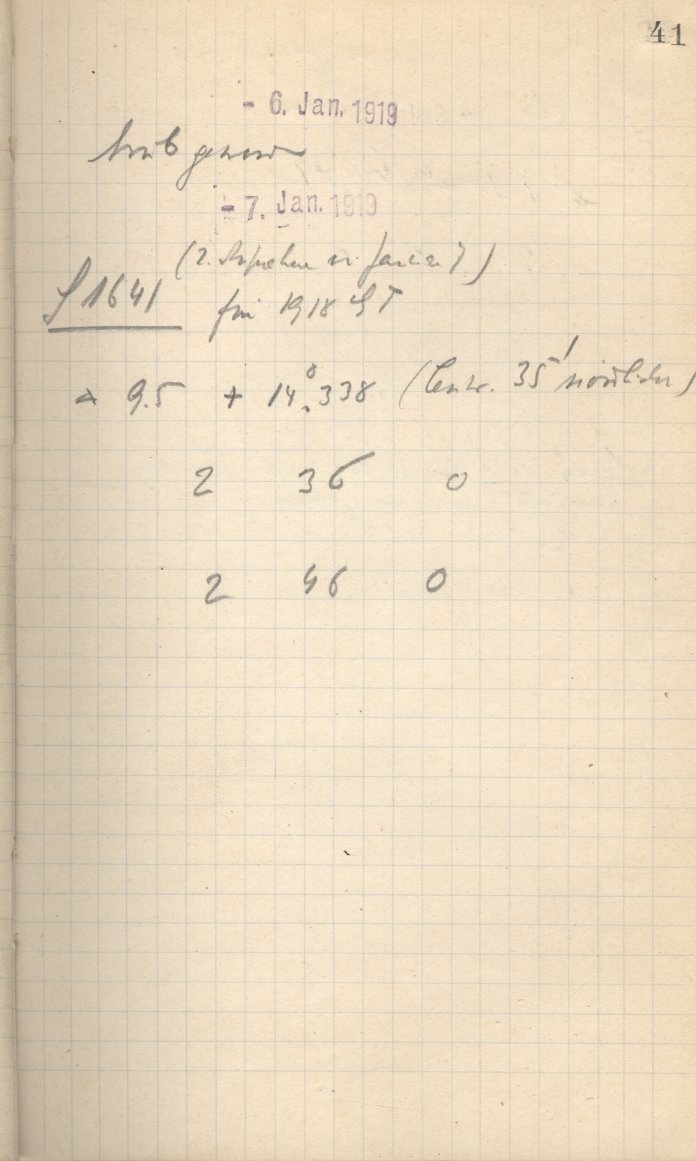 41
- 6. Jan. 1919
trüb geword
- 7. Jan. 1919
(2. Aufnahme v. Januar 7)
S 1641 für 1918
9.5 + 14°.338 (Centr. 35' nördlicher)
2 36 0
2 46 0